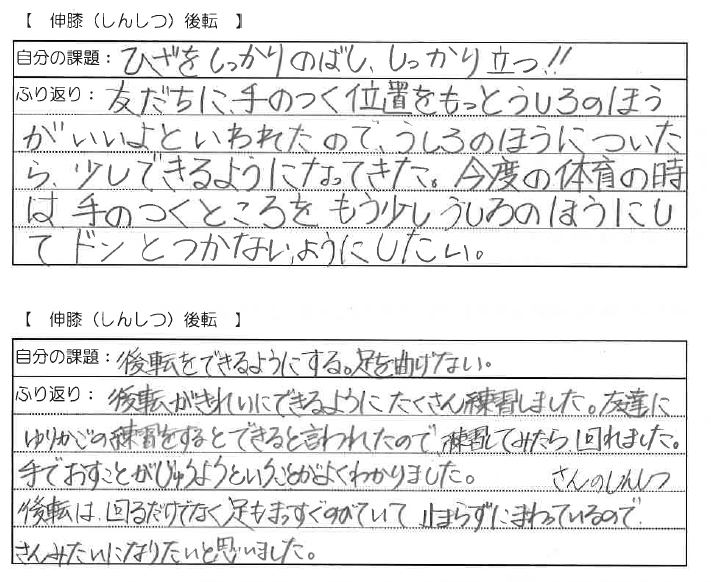 【 伸膝（しんしつ）後転 】
自分の課題：ひざをしっかりのばし、しっかり立つ!!
ふり返り：友だちに、手のつく位置をもっとうしろのほう
がいいよといわれたので、うしろのほうについた
ら、少しできるようになってきた。今度の体育の時
は、手のつくところをもう少しうしろのほうにし
てドンとつかないようにしたい。
【 伸膝（しんしつ）後転 】
自分の課題：後転をできるようにする。足を曲げない。
ふり返り：後転がきれいにできるようにたくさん練習しました。友達に
ゆりかごの練習をするとできると言われたので、練習してみたら、回れました。
手でおすことがじゅうようということがよくわかりました。 さんのしんしつ
後転は、回るだけでなく足もまっすぐのびていて止まらずにまわっているので、
さんみたいになりたいと思いました。